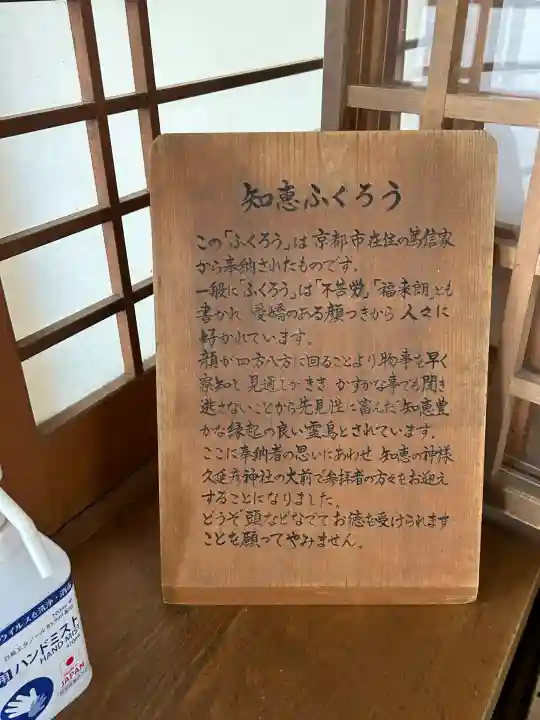 知恵ふくろう
この「ふくろう」は京都市在住の篤信家
から奉納されたものです。
一般に「ふくろう」は「不苦労」「福来朗」とも
書かれ 愛嬌のある顔つきから 人々に
好かれています。
顔が四方八方に回ることより物事を早く
察知し 見通しがきき かすかな事でも聞き
逃さないことから先見性に富んだ 知恵豊
かな縁起の良い霊鳥とされています。
ここに奉納者の思いにあわせ 知恵の神様
久延彦神社の大前で参拝者の方々をお迎え
することになりました。
どうぞ頭などなでてお徳を受けられます
ことを願ってやみません。
ウイルス&洗浄・消
用ハンドミスト
HAND MIST
JAPAN